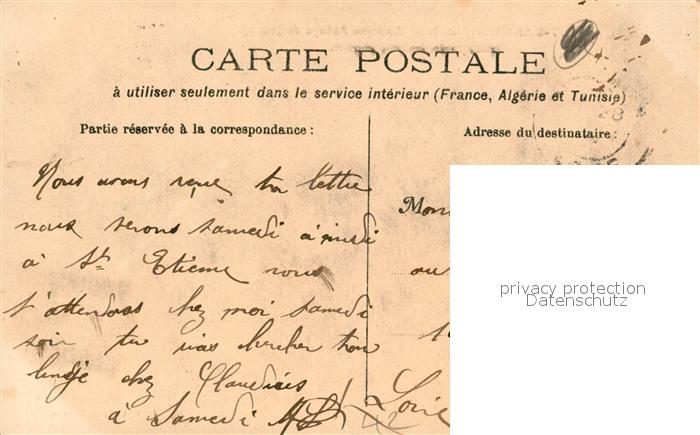 CARTE POSTALE
à utiliser seulement dans le service intérieur (France, Algérie et Tunisie)
Partie réservée à la correspondance :
Adresse du destinataire :
Nous avons reçue ta lettre
nous serons samedi à midi
à St Etienne nous
t'attendons chez moi samedi
soir tu vas chercher ton
linge chez
à Samedi
Mon
au
Loire
42
privacy protection
Datenschutz